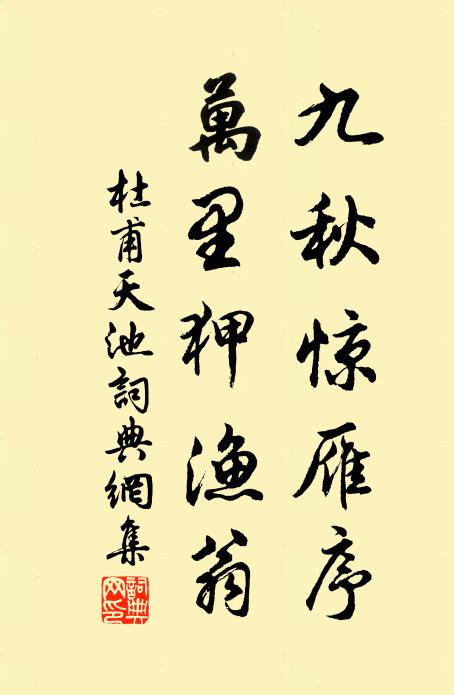 九秋惊雁序
萬里狎漁翁
杜甫天池詞典網集
詞典网印